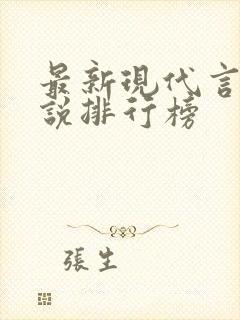 最新現代言
說排行榜
張生